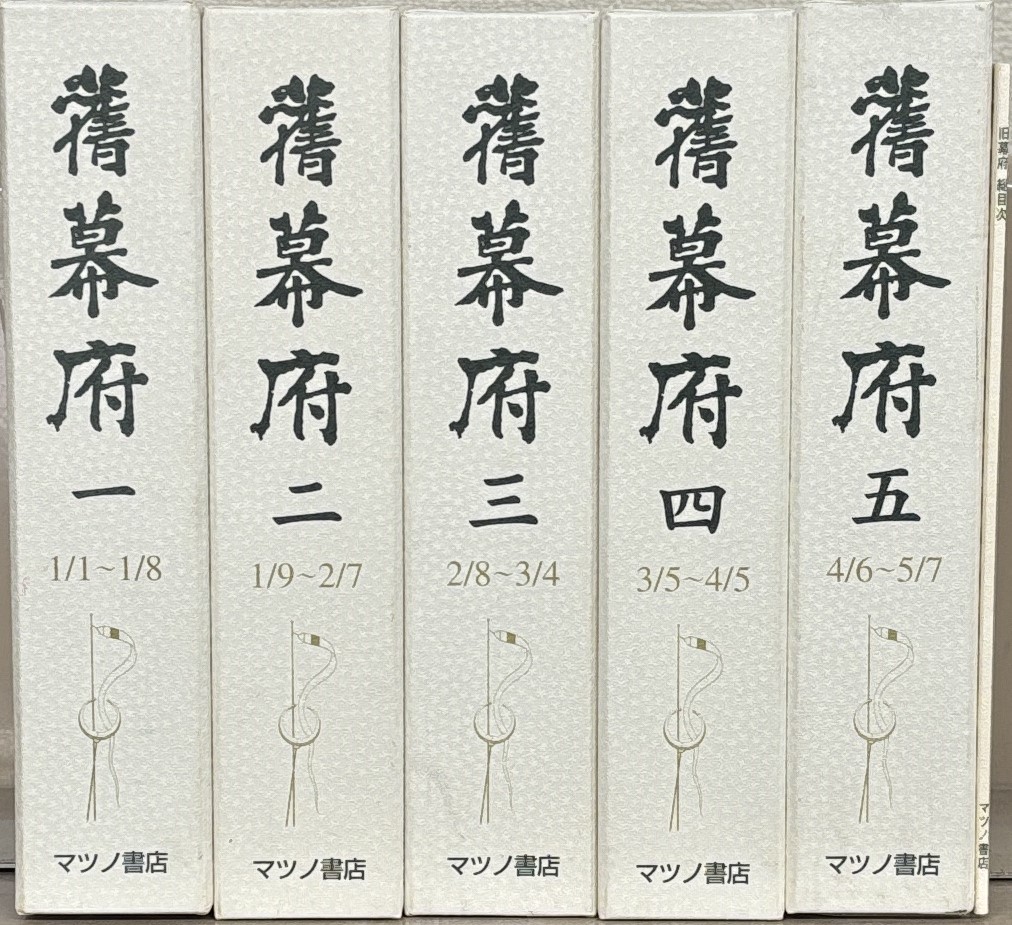 舊幕府 一
1/1~1/8
マツノ書店
舊幕府 二
1/9~2/7
マツノ書店
舊幕府 三
2/8~3/4
マツノ書店
舊幕府 四
3/5~4/5
マツノ書店
舊幕府 五
4/6~5/7
マツノ書店
旧幕府 総目次
マツノ書店